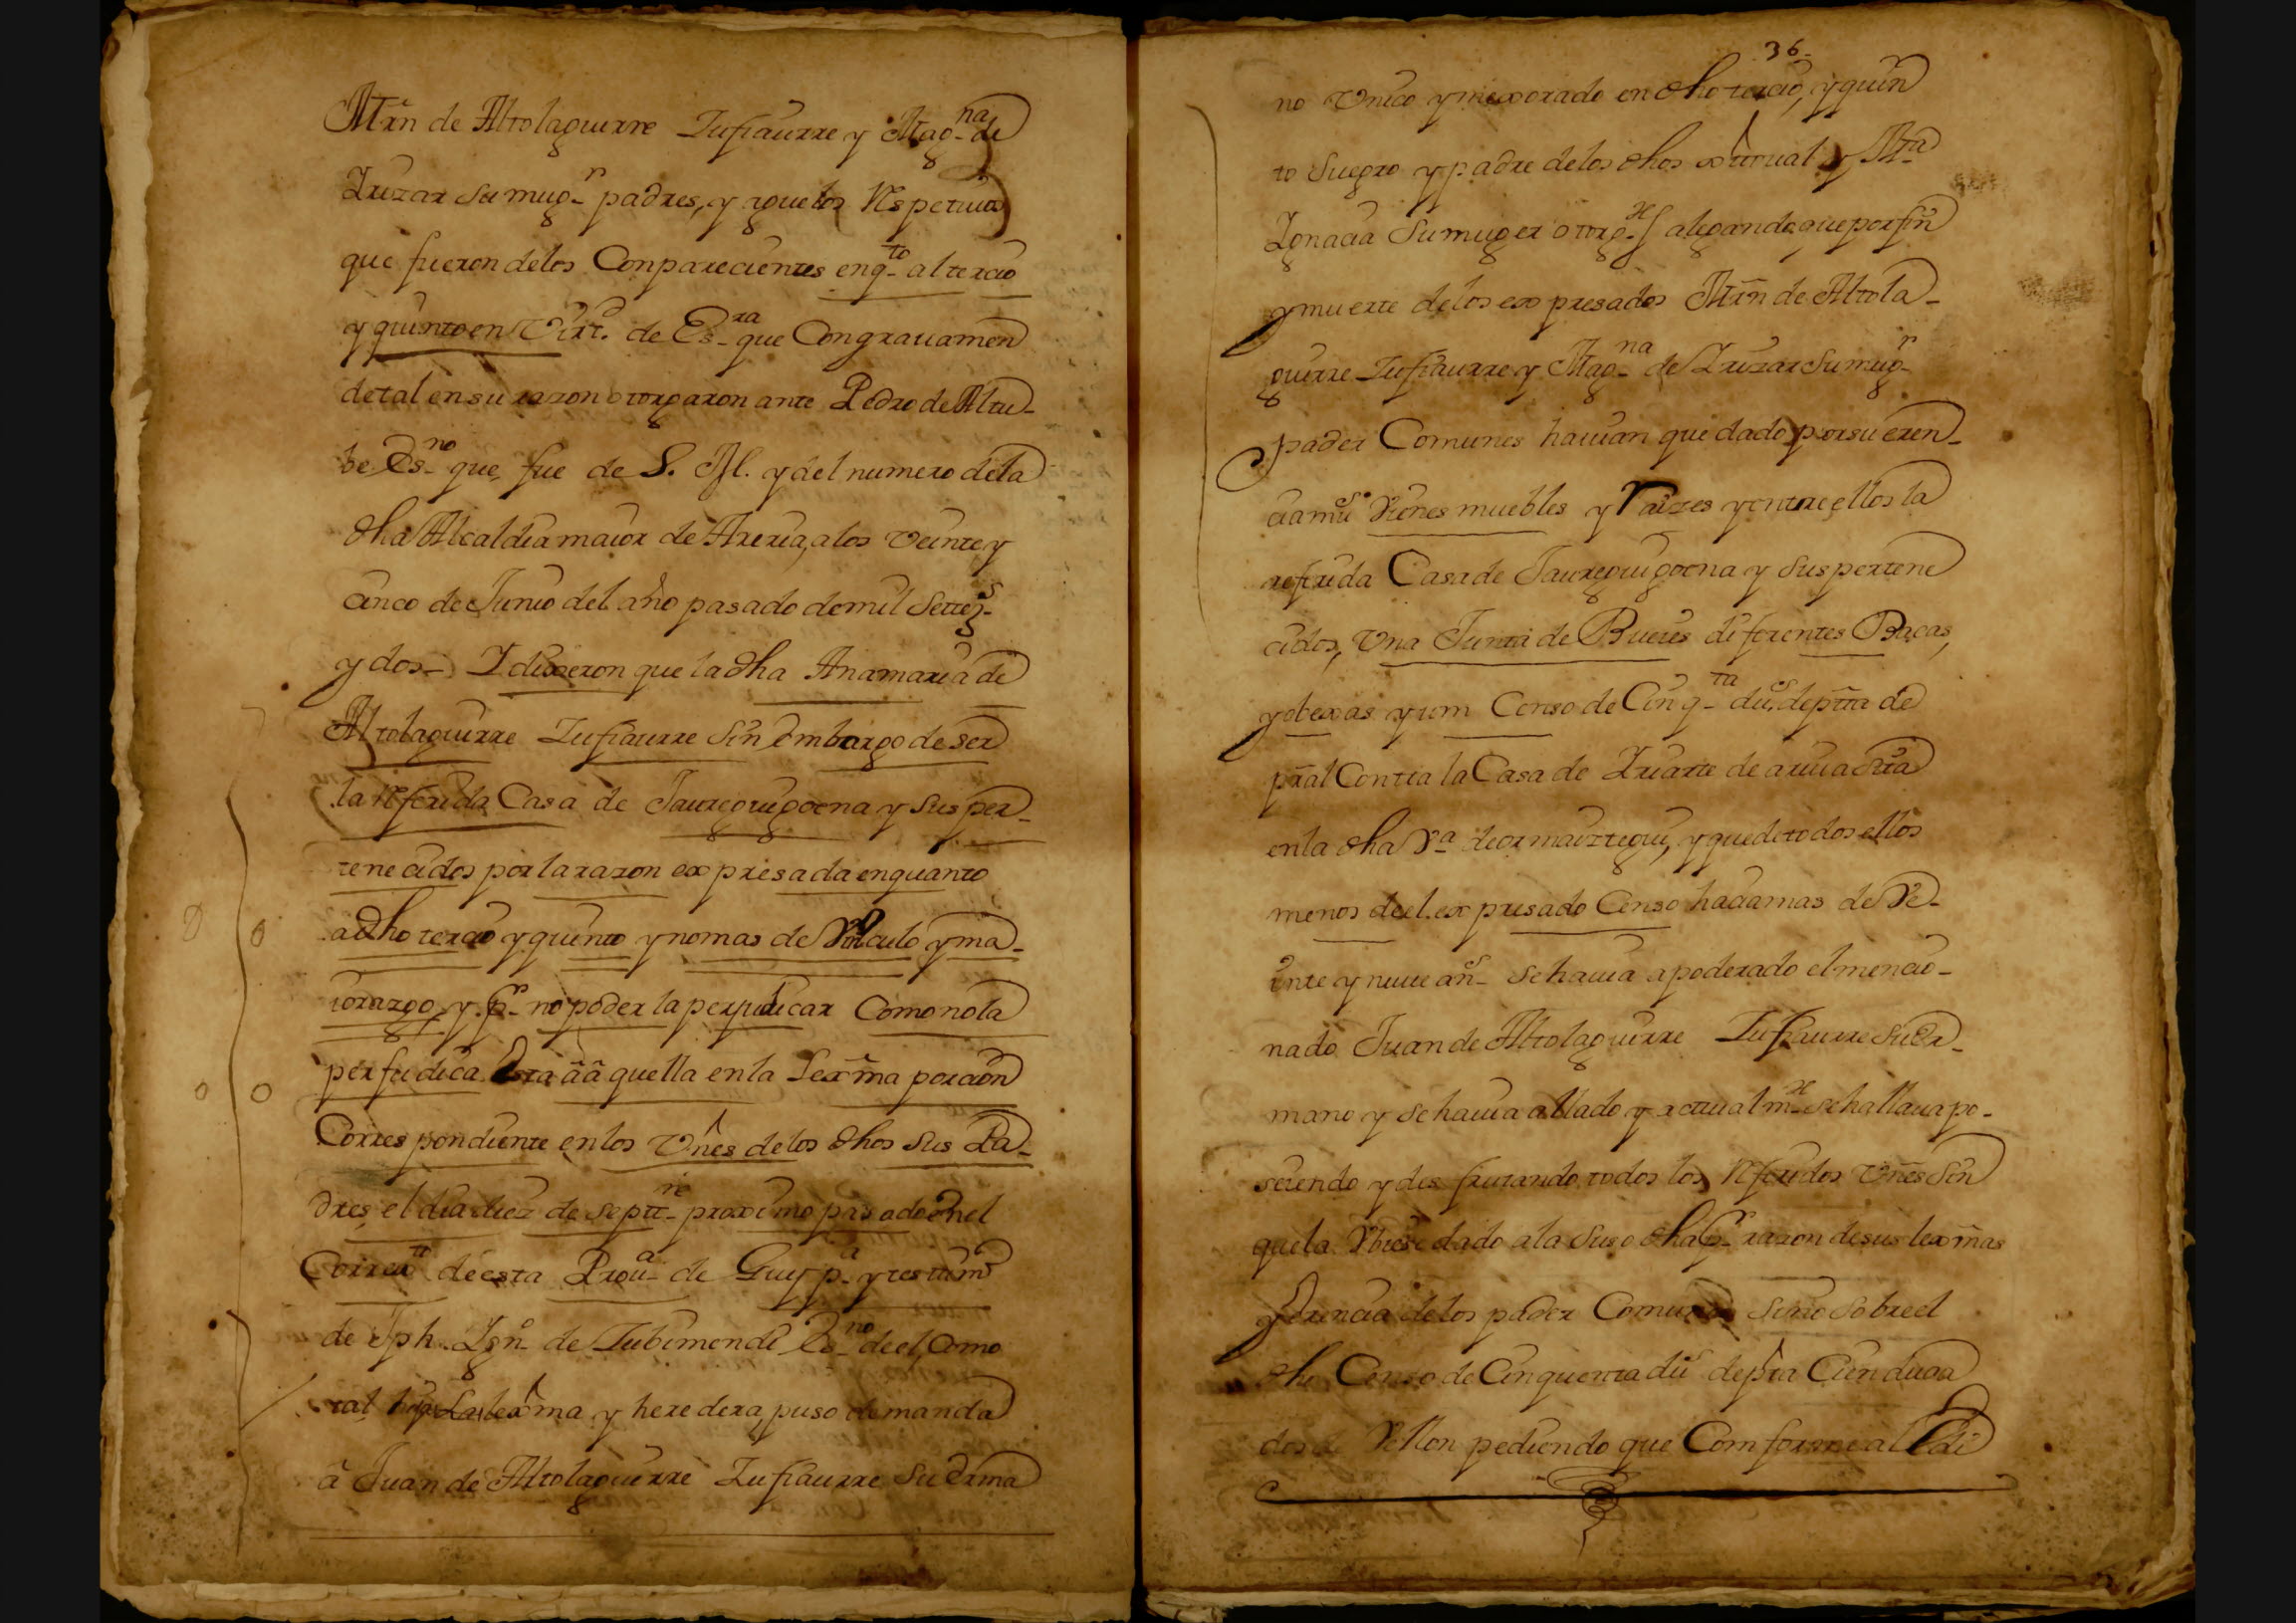 Mrn de Altolaguirre Zufiaurre y Magna de
Iruzar su mugr padres, y aguelos Respetiuos
que fueron delos Conparecientes en qto al tercio
y quinto en Virt. de Esra que Con grauamen
de tal en su razon otorgaron ante Pedro de Altu-
be Esno que fue de S. M. y del numero de la
dha Alcaldia maior de Areria, a los veinte y
cinco de Junio del año pasado de mil Setezs
y dos- I dixeron que la dha Ana maria de
Altolaguirre Zufiaurre sin embargo de ser
la Referida Casa de Jaureguigoena y sus per-
tenecidos por la razon expresada en quanto
a dho tercio y quinto y no mas de Vinculo y ma-
iorazgo, y pr no poder la perjudicar Como no la
perjudica esta ââ quella en la Lexma porcion
Correspondiente en los Vnes delos dhos sus Pa-
dres, el dia diez de septre proximo pasado en el
Correxto de esta Proua de Guypa y testimo
de Jph. Ign de Zubimendi Esno de el, Como
tal hija lexma y heredera, puso demanda
â Juan de Altolaguirre Zufiaurre su erma
36-
no Vnico y mexorado en dho tercio, y quin
to suegro y padre delos dhos Pasqual y Ma
Ignacia su muger otorgtes alegando, que por fin
y muerte delos expresados Mrn de Altola-
guirre Zufiaurre y Magna de Iruzar su mugr
pader Comunes hauian quedado por su eren-
cia mus Vienes muebles y raizes y entre ellos la
referida Casa de Jaureguigoena y sus pertene
cidos, Vna Junta de Bueies diferentes Bacas,
y obexas y un Censo de Cinqta dus de pta de
pral Contra la Casa de Iriarte de arriua sita
en la dha Va de ormaiztegui, y que de todos ellos
menos del expresado Censo hacia mas de Ve-
inte y nueue añs se hauia apoderado el mencio-
nado Juan de Altolaguirre Zufiaurre su er-
mano y se hauia allado y actualmte se hallaua po-
seiendo y disfrutando todos los Referidos Vnes sin
que la Vbiese dado a la suso dha pr razon de sus lexmas
y erencia delos pader Comunes sino sobre el
dho Censo de Cinquenta dus de pta Cien duca
dos de Vellon pediendo que Comforme al Edi